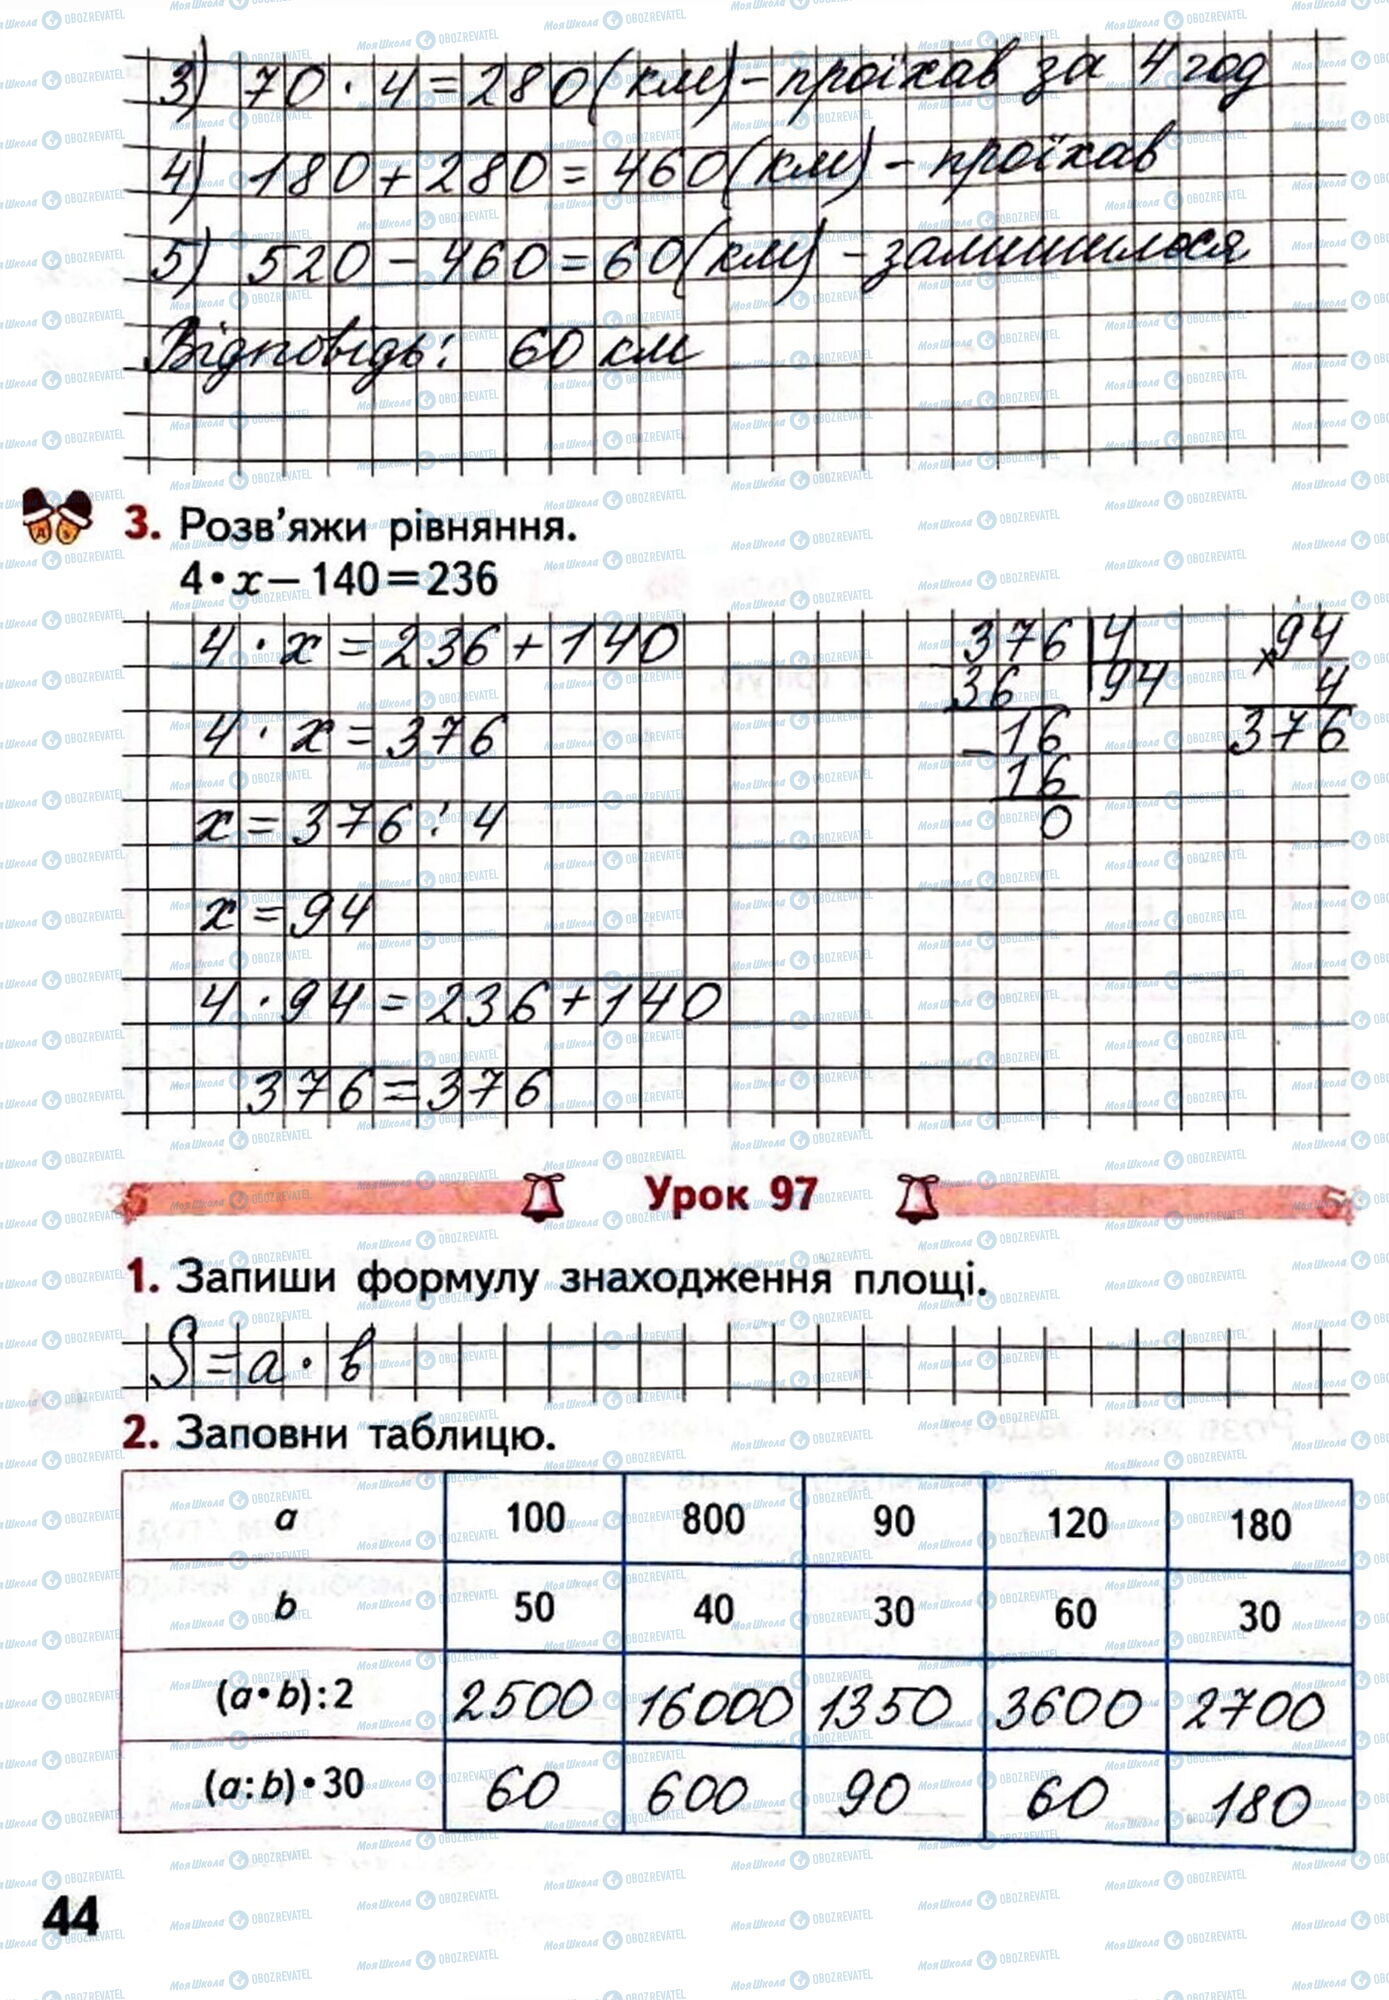 3) 70 · 4 = 280 (км) – проїхав за 4 год
4) 180 + 280 = 460 (км) – проїхав
5) 520 – 460 = 60 (км) – залишилося
Відповідь: 60 км
3. Розв'яжи рівняння.
4 • x – 140 = 236
4 · x = 236 + 140
4 · x = 376
x = 376 : 4
x = 94
4 · 94 = 236 + 140
376 = 376
376 | 4
36 | 94
– 16
16
0
94
× 4
376
Урок 97
1. Запиши формулу знаходження площі.
S = a · в
2. Заповни таблицю.
a 100 800 90 120 180
b 50 40 30 60 30
(a • b) : 2 2500 16000 1350 3600 2700
(a : b) • 30 60 600 90 60 180
44
МояШкола OBOZREVATEL